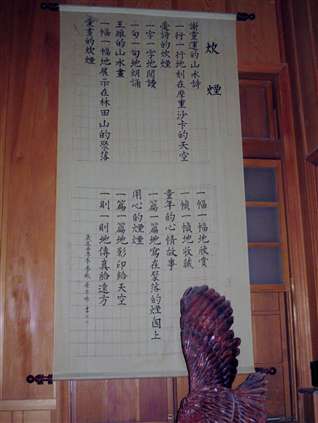 炊煙
謝靈運的山水詩
一行一行地刻在摩里沙卡的天空
愛詩的炊煙
一字一字地閱讀
一句一句地朗誦
王維的山水畫
一幅一幅地展示在林田山的聚落
愛畫的炊煙
一幅一幅地欣賞
一幀一幀地收藏
童年的心情故事
一篇一篇地寫在聚落的煙囪上
用心的炊煙
一篇一篇地影印給天空
一則一則地傳真給遠方